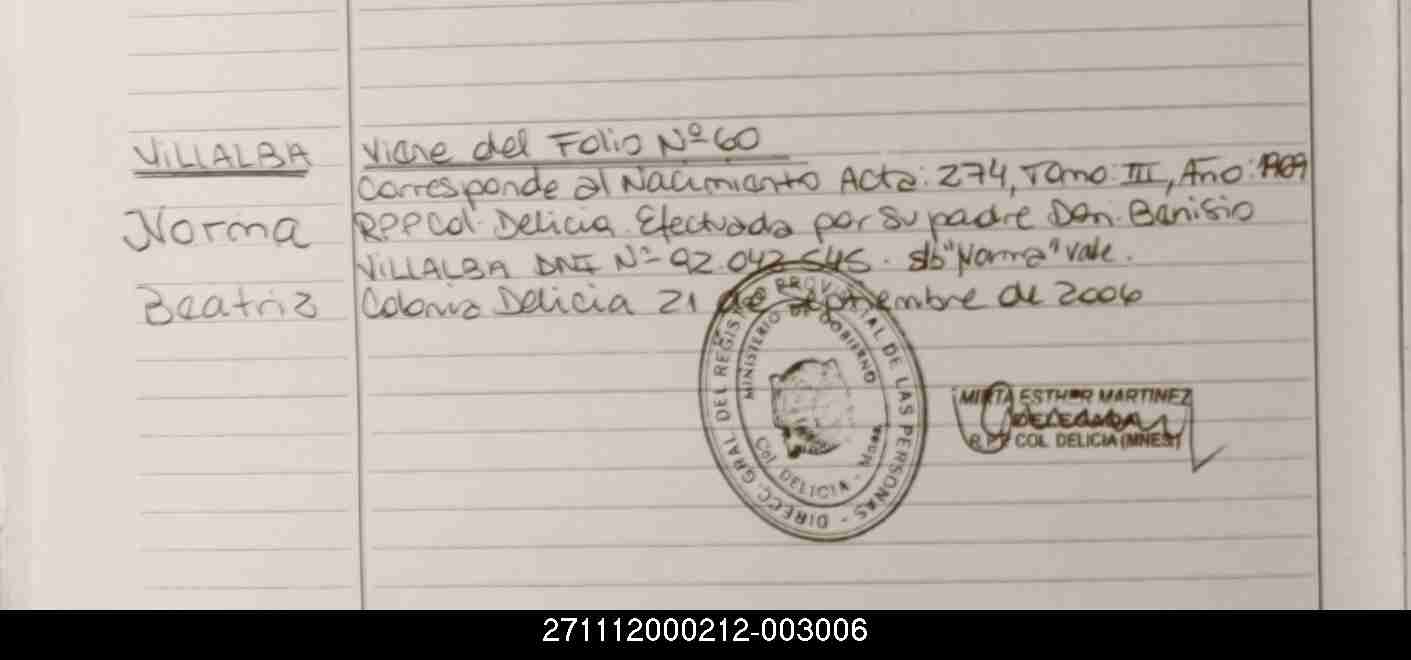 VILLALBA
Norma
Beatriz
Viene del Folio Nº 60
Corresponde al Nacimiento Acta: 274, Tomo: III, Año:
RPP Col. Delicia. Efectuada por su padre Don. Banisio
VILLALBA DNI Nº 92.042.545. s/b "Norma" vale.
Colonia Delicia 21 de Septiembre de 2006
DIRECC. GRAL. DEL REGISTRO PROVINCIAL DE LAS PERSONAS
MINISTERIO DE GOBIERNO
Col. DELICIA - Mnes
MIRTA ESTHER MARTINEZ
DELEGADA
R.P.P. COL DELICIA (MNES)
271112000212-003006